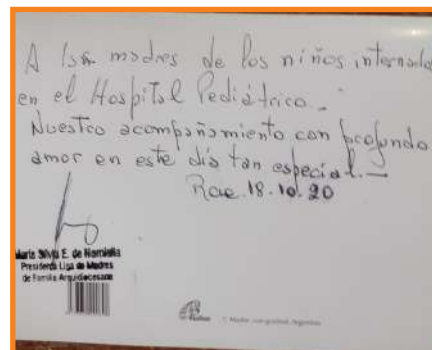 A las madres de los niños internados
en el Hospital Pediátrico.-
Nuestro acompañamiento con profundo
amor en este día tan especial.—
Rcia. 18.10.20
María Silvia E. de
Presidenta Liga de Madres
de Familia Arquidiocesana